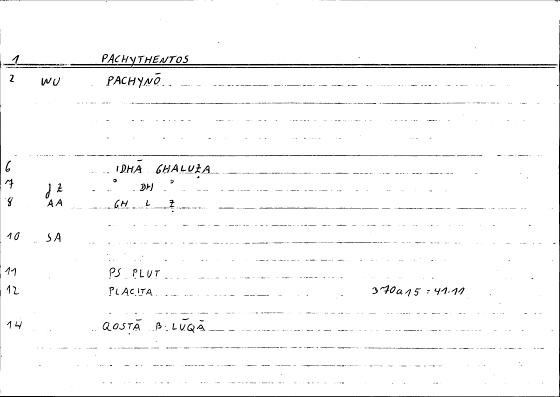 1 PACHYTHENTOS
2 WU PACHYNŌ
6 IDHĀ GHALUẒA
7 J Ẓ " DH "
8 AA GH L Ẓ
10 SA
11 PS PLUT
12 PLACITA 370a15 = 41.11
14 QOSṬĀ B. LŪQĀ